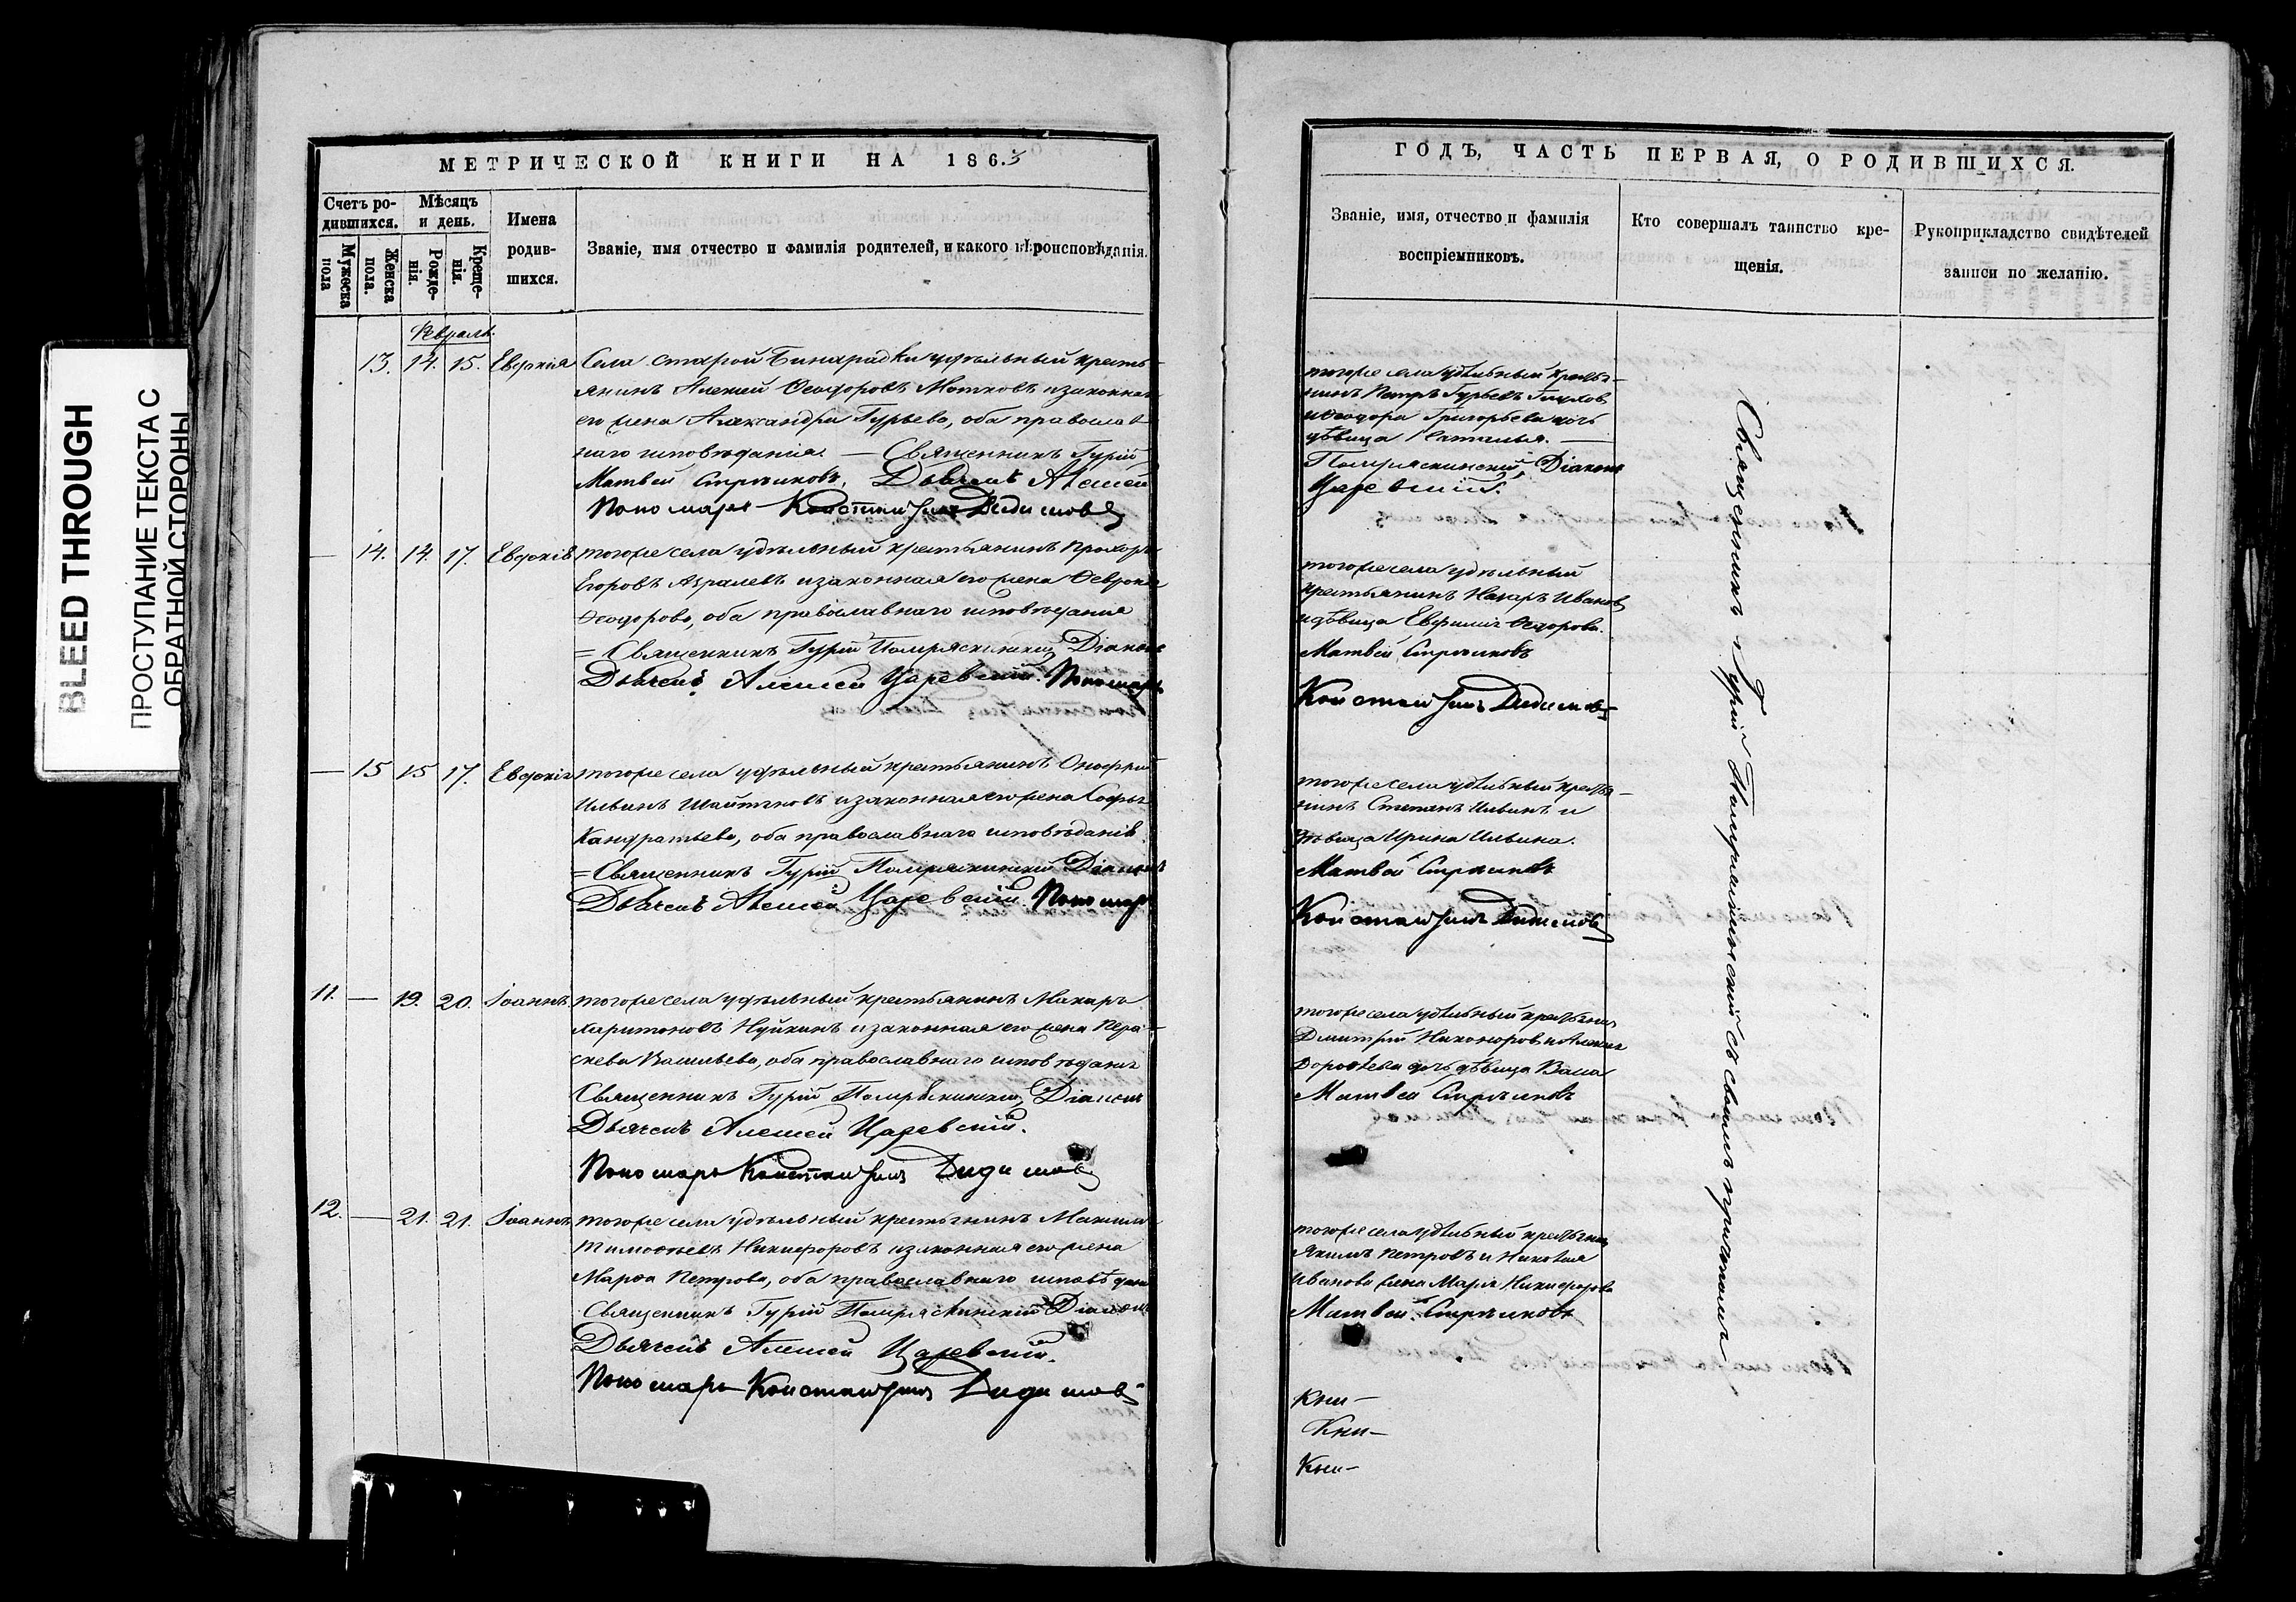 BLEED THROUGH
ПРОСТУПАНИЕ ТЕКСТА С
ОБРАТНОЙ СТОРОНЫ
МЕТРИЧЕСКОЙ КНИГИ НА 1863
Счетъ ро-
дившихся.
Мѣсяцъ
и день.
Мужеска
пола
Женска
пола.
Рожде-
нія.
Креще-
нія.
Имена
родив-
шихся.
Званіе, имя отчество и фамилія родителей, и какого вѣроисповѣданія.
Февраль.
13. 14. 15. Евдокія Села Старой Бинарадки удѣльный кресть-
янинъ Алексей Ѳеодоровъ Матковъ и законная
его жена Александра Гурьева, оба православ
наго исповѣданія — Священникъ Гурій
Матвей Стрѣлковъ. Дьячекъ Алексей
Пономарь Константинъ Дидимовъ
— 14. 14. 17. Евдокія тогоже села удѣльный крестьянинъ Прохоръ
Егоровъ Азралевъ и законная его жена Февронія
Ѳеодорова, оба православнаго исповѣданія
= Священникъ Гурій Помряскинскій Діаконъ
Дьячекъ Алексей Царевскій. Пономарь
— 15 15 17. Евдокія тогоже села удѣльный крестьянинъ Онофрій
Ильинъ Шайтановъ и законная его жена Софья
Кандратьева, оба православнаго исповѣданія
= Священникъ Гурій Помряскинскій Діаконъ
Дьячекъ Алексей Царевскій. Пономарь
11. — 19. 20. Іоаннъ тогоже села удѣльный крестьянинъ Макаръ
Харитоновъ Нуйкинъ и законная его жена Пара-
скева Васильева, оба православнаго исповѣданія
Священникъ Гурій Помряскинскій Діаконъ
Дьячекъ Алексей Царевскій.
Пономарь Константинъ Дидимовъ
12. — 21. 21. Іоаннъ тогоже села удѣльный крестьянинъ Максимъ
Тимоѳеевъ Никифоровъ и законная его жена
Марѳа Петрова, оба православнаго исповѣданія
Священникъ Гурій Помряскинскій Діаконъ
Дьячекъ Алексей Царевскій.
Пономарь Константинъ Дидимовъ
ГОДЪ, ЧАСТЬ ПЕРВАЯ, О РОДИВШИХСЯ.
Званіе, имя, отчество и фамилія
воспріемниковъ.
Кто совершалъ таинство кре-
щенія.
Рукоприкладство свидѣтелей
записи по желанію.
тогоже села удѣльный крестья-
нинъ Петръ Гурьевъ
и Ѳеодора Григорьева дочь
дѣвица Наталья. —
Помряскинскій Діаконъ
Царевскій.
тогоже села удѣльный
крестьянинъ Назаръ Ивановъ
и дѣвица Евфимія Ѳедорова.
Матвей Стрѣлковъ
Константинъ Дидимовъ
тогоже села удѣльный крестья-
нинъ Степанъ Ильинъ и
дѣвица Ирина Ильина.
Матвей Стрѣлковъ
Константинъ Дидимовъ
тогоже села удѣльный крестьянинъ
Дмитрій Никаноровъ и
Дороѳеева дочь дѣвица Васса
Матвей Стрѣлковъ
тогоже села удѣльный крестьянинъ
Якимъ Петровъ и
Иванова жена Марья Никифорова
Матвей Стрѣлковъ
Кни-
Кни-
Кни-
Священникъ Гурій Помряскинскій съ своимъ причтомъ